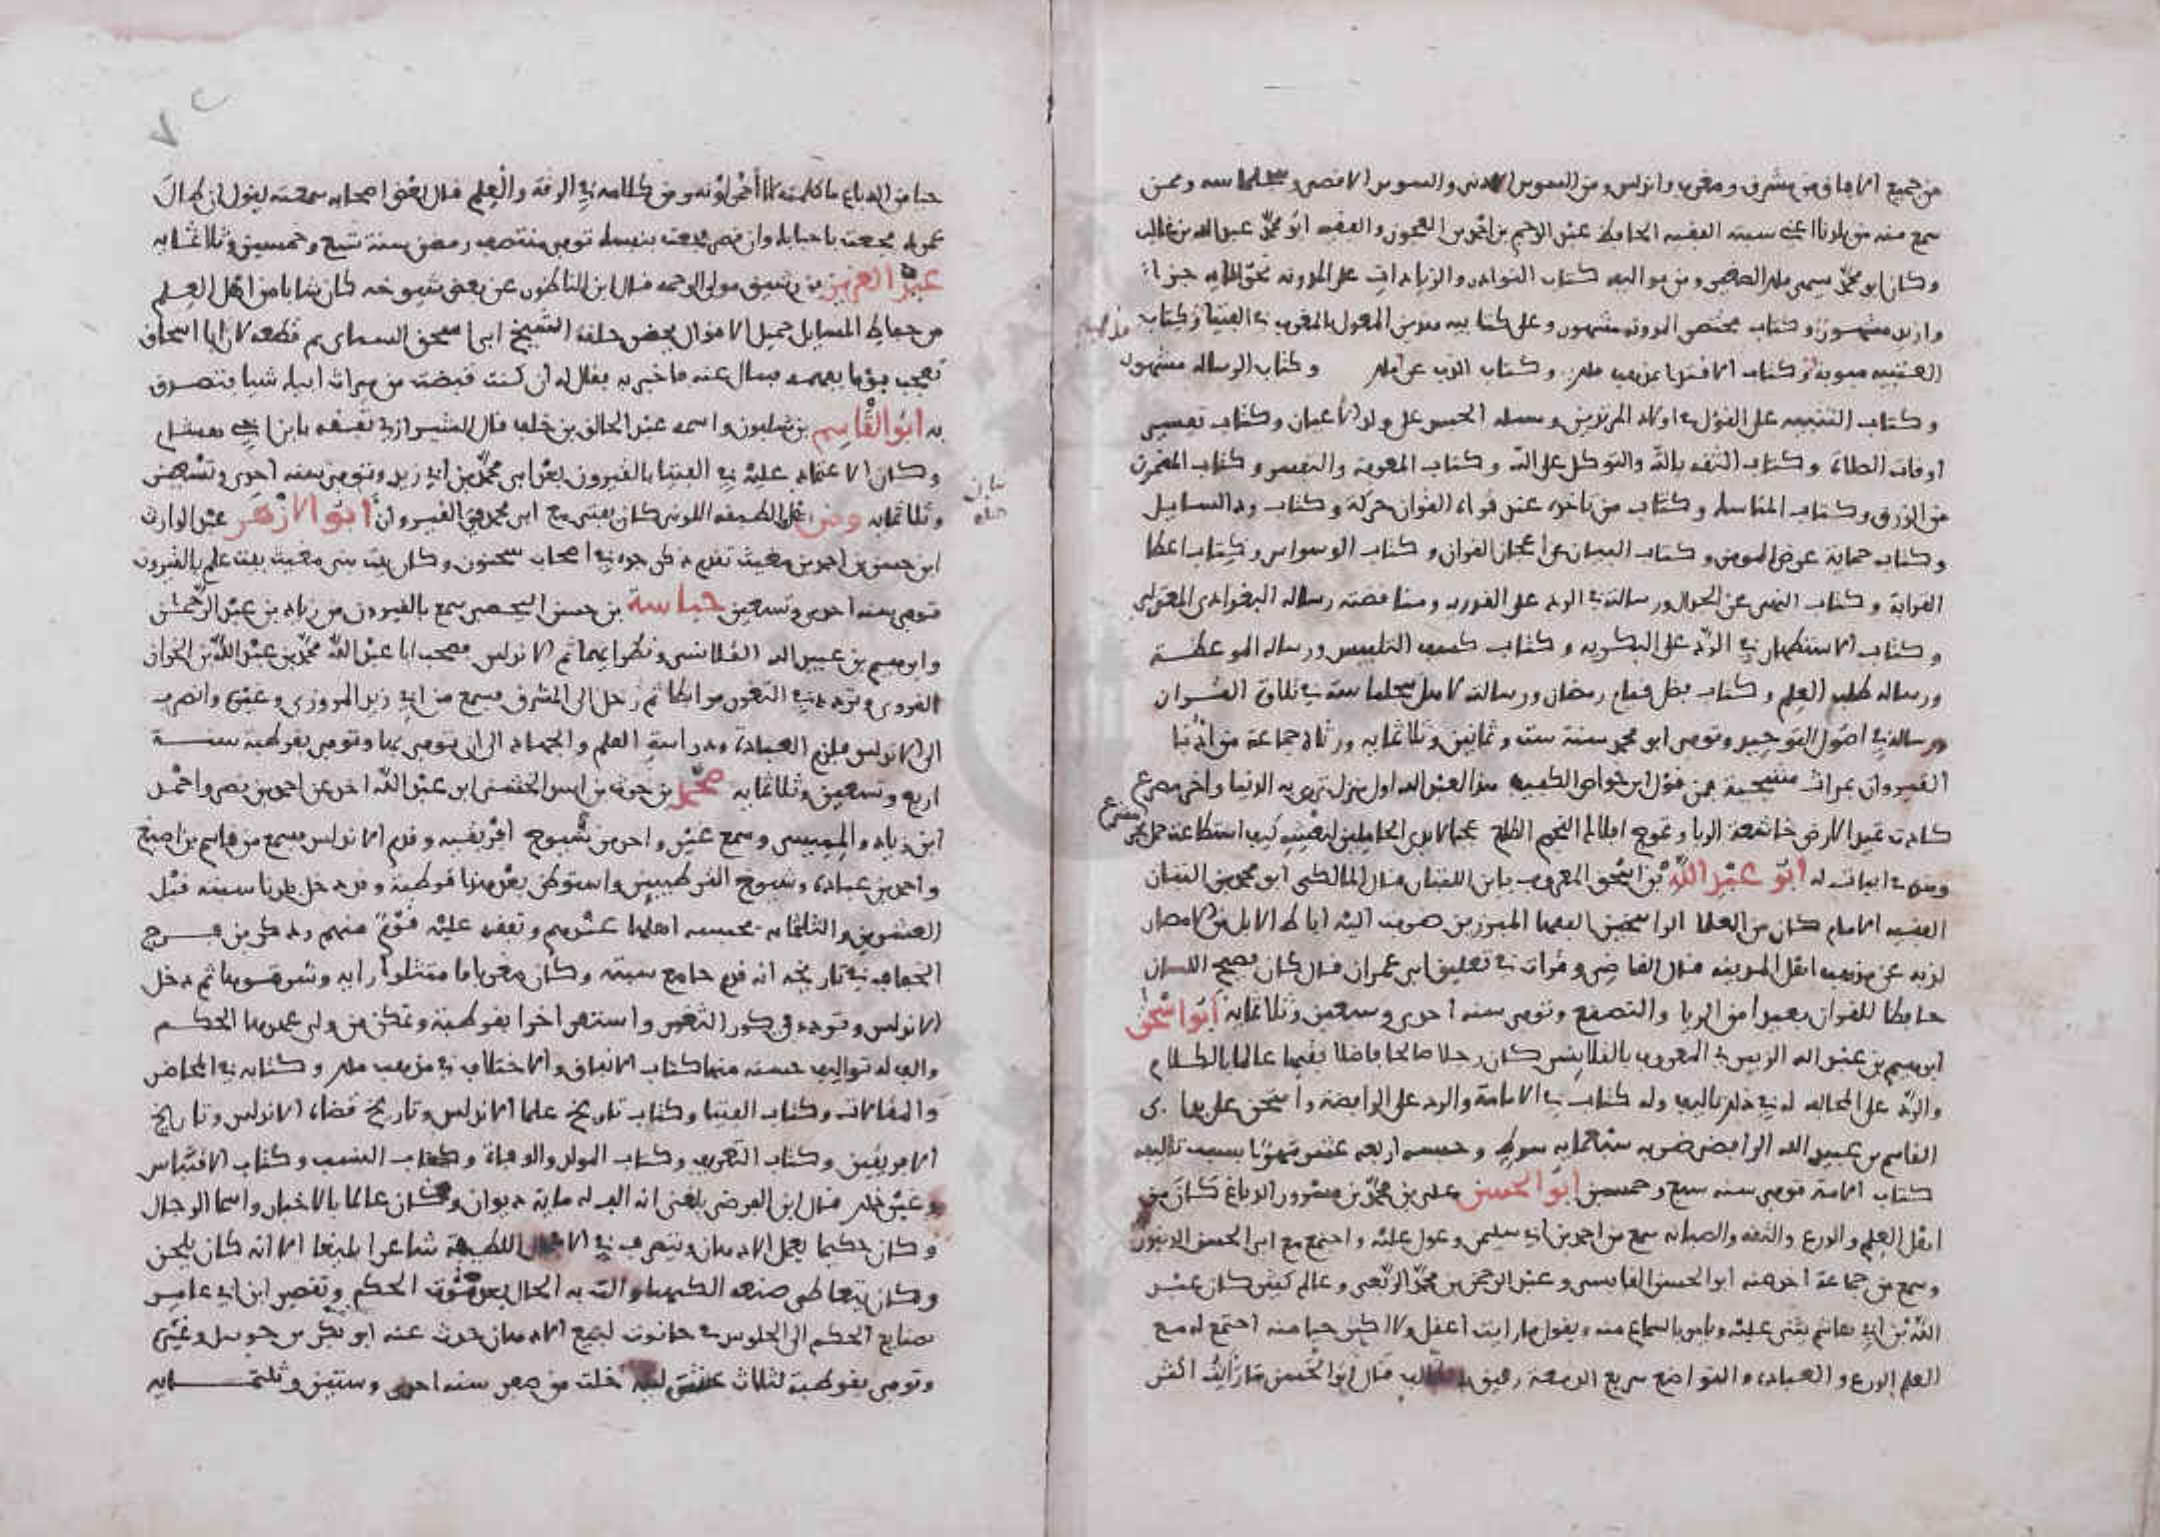 من جميع الافاق من مشرق ومغرب واندلس ومن السوس الادنى والسوس الاقصى وسجلماسه وممن
سمع منه من بلدنا اعني سبتة الفقيه الحافظ عبد الرحيم بن احمد بن العجوز والفقيه ابو محمد عبد الله بن غالب
وكان ابو محمد يسمى ملك الصغير ومن تواليفه كتاب النوادر والزيادات على المدونه نحو الماية جزء
وازيد مشهور وكتاب مختصر المدونه مشهور وعلى كتابيه هذين المعول بالمغرب في الفتيا وكتاب
العتبيه مبوبة وكتاب الاقتدا بمذهب ملك وكتاب الذب عن ملك وكتاب الرساله مشهور
وكتاب التنبيه على القول في اولاد المرتدين ومسله الحبس على ولد الاعيان وكتاب تفسير
اوقات الصلاة وكتاب الثقه بالله والتوكل على الله وكتاب المعرفة والتفسير وكتاب المضمون
من الرزق وكتاب المناسك وكتاب من تاخذه عند قراءة القران حركة وكتاب رد السايل
وكتاب حماية عرض المومن وكتاب البيان عن اعجاز القران وكتاب الوسواس وكتاب اعطا
القرابة وكتاب النهي عن الجدال ورسالته في الرد على القدريه ومناقضته رساله البغدادي المعتزلي
وكتاب الاستظهار في الرد على البكريه وكتاب كشف التلبيس ورساله الموعظة
ورساله طلب العلم وكتاب فضل قيام رمضان ورسالته لاهل سجلماسة في تلاوة القران
ورسالة في اصول التوحيد وتوفي ابو محمد سنة ست وثمانين وثلاثمايه ورثاه جماعة من ادبا
القيروان بمراث
كادت تميد الارض خاشعة الربا وتموج افلاك النجوم الطلع عجبا لايدي الحاملين لنعشه كيف استطاعت حمل بحر
مترع
في ابيات له ابو عبد الله بن اسحق المعروف بابن التبان قال المالكي ابو محمد بن التبان
الفقيه الامام كان من العلما الراسخين الفقها المبرزين ضربت اليه اباط الابل من الامصار
لذبه عن مذهب اهل المدينه قال القاضي وقرات في تعليق ابي عمران قال كان فصيح اللسان
حافظا للقران بعيدا من الريا والتصنع وتوفي سنه احدى وسبعين وثلاثمايه ابو اسحق
ابرهيم بن عبد الله الزبيدي المعروف بالقلانسي كان رجلا صالحا فاضلا فقيها عالما بالكلام
والرد على المخالف له في ذلك تاليف وله كتاب في الامامة والرد على الرافضة وامتحن على يدي
القاسم بن عبيد الله الرافضي ضربه سبعمايه سوط وحبسه اربعه عشر شهرا بسبب تاليفه
كتاب الامامة توفي سنه سبع وخمسين ابو الحسن علي بن محمد بن مسرور الدباغ كان من
اهل العلم والورع والثقه والصيانه سمع من احمد بن ابي سليمن وعول عليه واجتمع مع ابي الحسن الدينوري
وسمع من جماعة اخذ عنه ابو الحسن القابسي وعبد الرحمن بن محمد الربعي وعالم كثير كان عبد
الله بن ابي هاشم يثني عليه ويامر بالسماع منه ويقول ما رايت اعقل ولا اكثر حيا منه اجتمع له مع
العلم الورع والعبادة والتواضع سريع الدمعة رقيق القلب قال ابو الحسن ما رايت اكثر
حيا من الدباغ ما كلمته الا احمر لونه ومن كلامه في الرقة والعلم قال بعض اصحابه سمعته يقول ان طال
عمرك فجعت باحبابك وان قصر فجعت بنفسك توفي منتصف رمضن سنة تسع وخمسين وثلاثمايه
عبد العزيز بن رشيق مولى الرحمه قال ابن الناظور عن بعض شيوخه كان شابا من اهل العلم
من حفاظ المسايل جميل الاحوال يحضر حلقة الشيخ ابي اسحق السبائي ثم قطعه لان ابا اسحاق
تعجب يوما بفهمه فسال عنه فاخبر به فقال له ان كنت قبضت من ميراث ابيك شيا فتصدق
به ابو القاسم بن شبلون واسمه عبد الخالق بن خلف قال الشيرازي تفقه بابن ابي هشام
وكان الاعتماد عليه في الفتيا بالقيروان بعد ابي محمد بن ابي زيد وتوفي سنه احدى وتسعين
وثلاثمايه ومن اهل الطبقه الذين كان يفتي مع ابي محمد في القيروان ابو الازهر عبد الوارث
ابن حسن بن احمد بن مغيث تقدم ذكر جده في اصحاب سحنون وكان بيت بني مغيث بيت علم بالقيروان
توفي سنه احدى وتسعين حباسة بن حسن اليحصبي سمع بالقيروان من زياد بن عبد الرحمن
وابرهيم بن عبيد الله القلانسي ونظرايهما ثم الاندلس فصحب ابا عبد الله محمد بن عبد الله بن الخراز
القروي وتردد في الثغور مرابطا ثم رحل الى المشرق فسمع من ابي زيد المروزي وغيره وانصرف
الى الاندلس فلزم العبادة ودراسة العلم والجهاد الى ان توفي بها وتوفي بقرطبة سنة
اربع وتسعين وثلاثمايه محمد بن حرث بن اسد الخشني ابن عبد الله اخذ عن احمد بن نصر واحمد
ابن زياد والممسي وسمع غير واحد من شيوخ افريقيه وقدم الاندلس فسمع من قاسم بن اصبغ
واحمد بن عبادة وشيوخ القرطبيين واستوطن بعد هذا قرطبة وقد دخل بلدنا سبته قبل
العشرين والثلثمايه فحبسه اهلها عندهم وتفقه عليه قوم منهم وذكر بن فرج
الجيابي في تاريخه انه قوم جامع سبتة وكان مغربا ما متثلوا رايه وشرقوها ثم دخل
الاندلس وتردد في كور الثغور واستقر اخرا بقرطبة وتمكن من ولي عهدها الحكم
والف له تواليف حسنه منها كتاب الاتفاق والاختلاف في مذهب ملك وكتابه في المحاضر
والمقالات وكتاب الفتيا وكتاب تاريخ علما الاندلس وتاريخ قضاة الاندلس وتاريخ
الافريقين وكتاب التعريف وكتاب المولد والوفاة وكتاب النسب وكتاب الاقتباس
وغير ذلك قال ابن الفرضي بلغني انه الف له ماية ديوان وكان عالما بالاخبار واسما الرجال
وكان حكيما يعمل الادهان ويتصرف في الاعمال اللطيفة شاعرا بليغا الا انه كان يلحن
وكان يتعاطى صنعه الكيميا والت به الحال بعد موت الحكم وتقصير ابن ابي عامر
بصنايع الحكم الى الجلوس في حانوت لبيع الادهان حدث عنه ابو بكر بن حوبيل وغيره
وتوفي بقرطبة لثلاث عشرة ليلة خلت من صفر سنه احدى وستين وثلثمايه